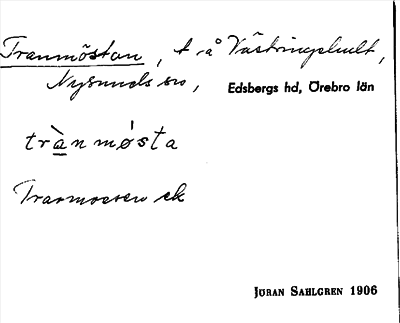 Tranmöstan, t. å Västringshult,
Nysunds sn, Edsbergs hd, Örebro län
trànmǿsta
Tranmossen ek
JÖRAN SAHLGREN 1906